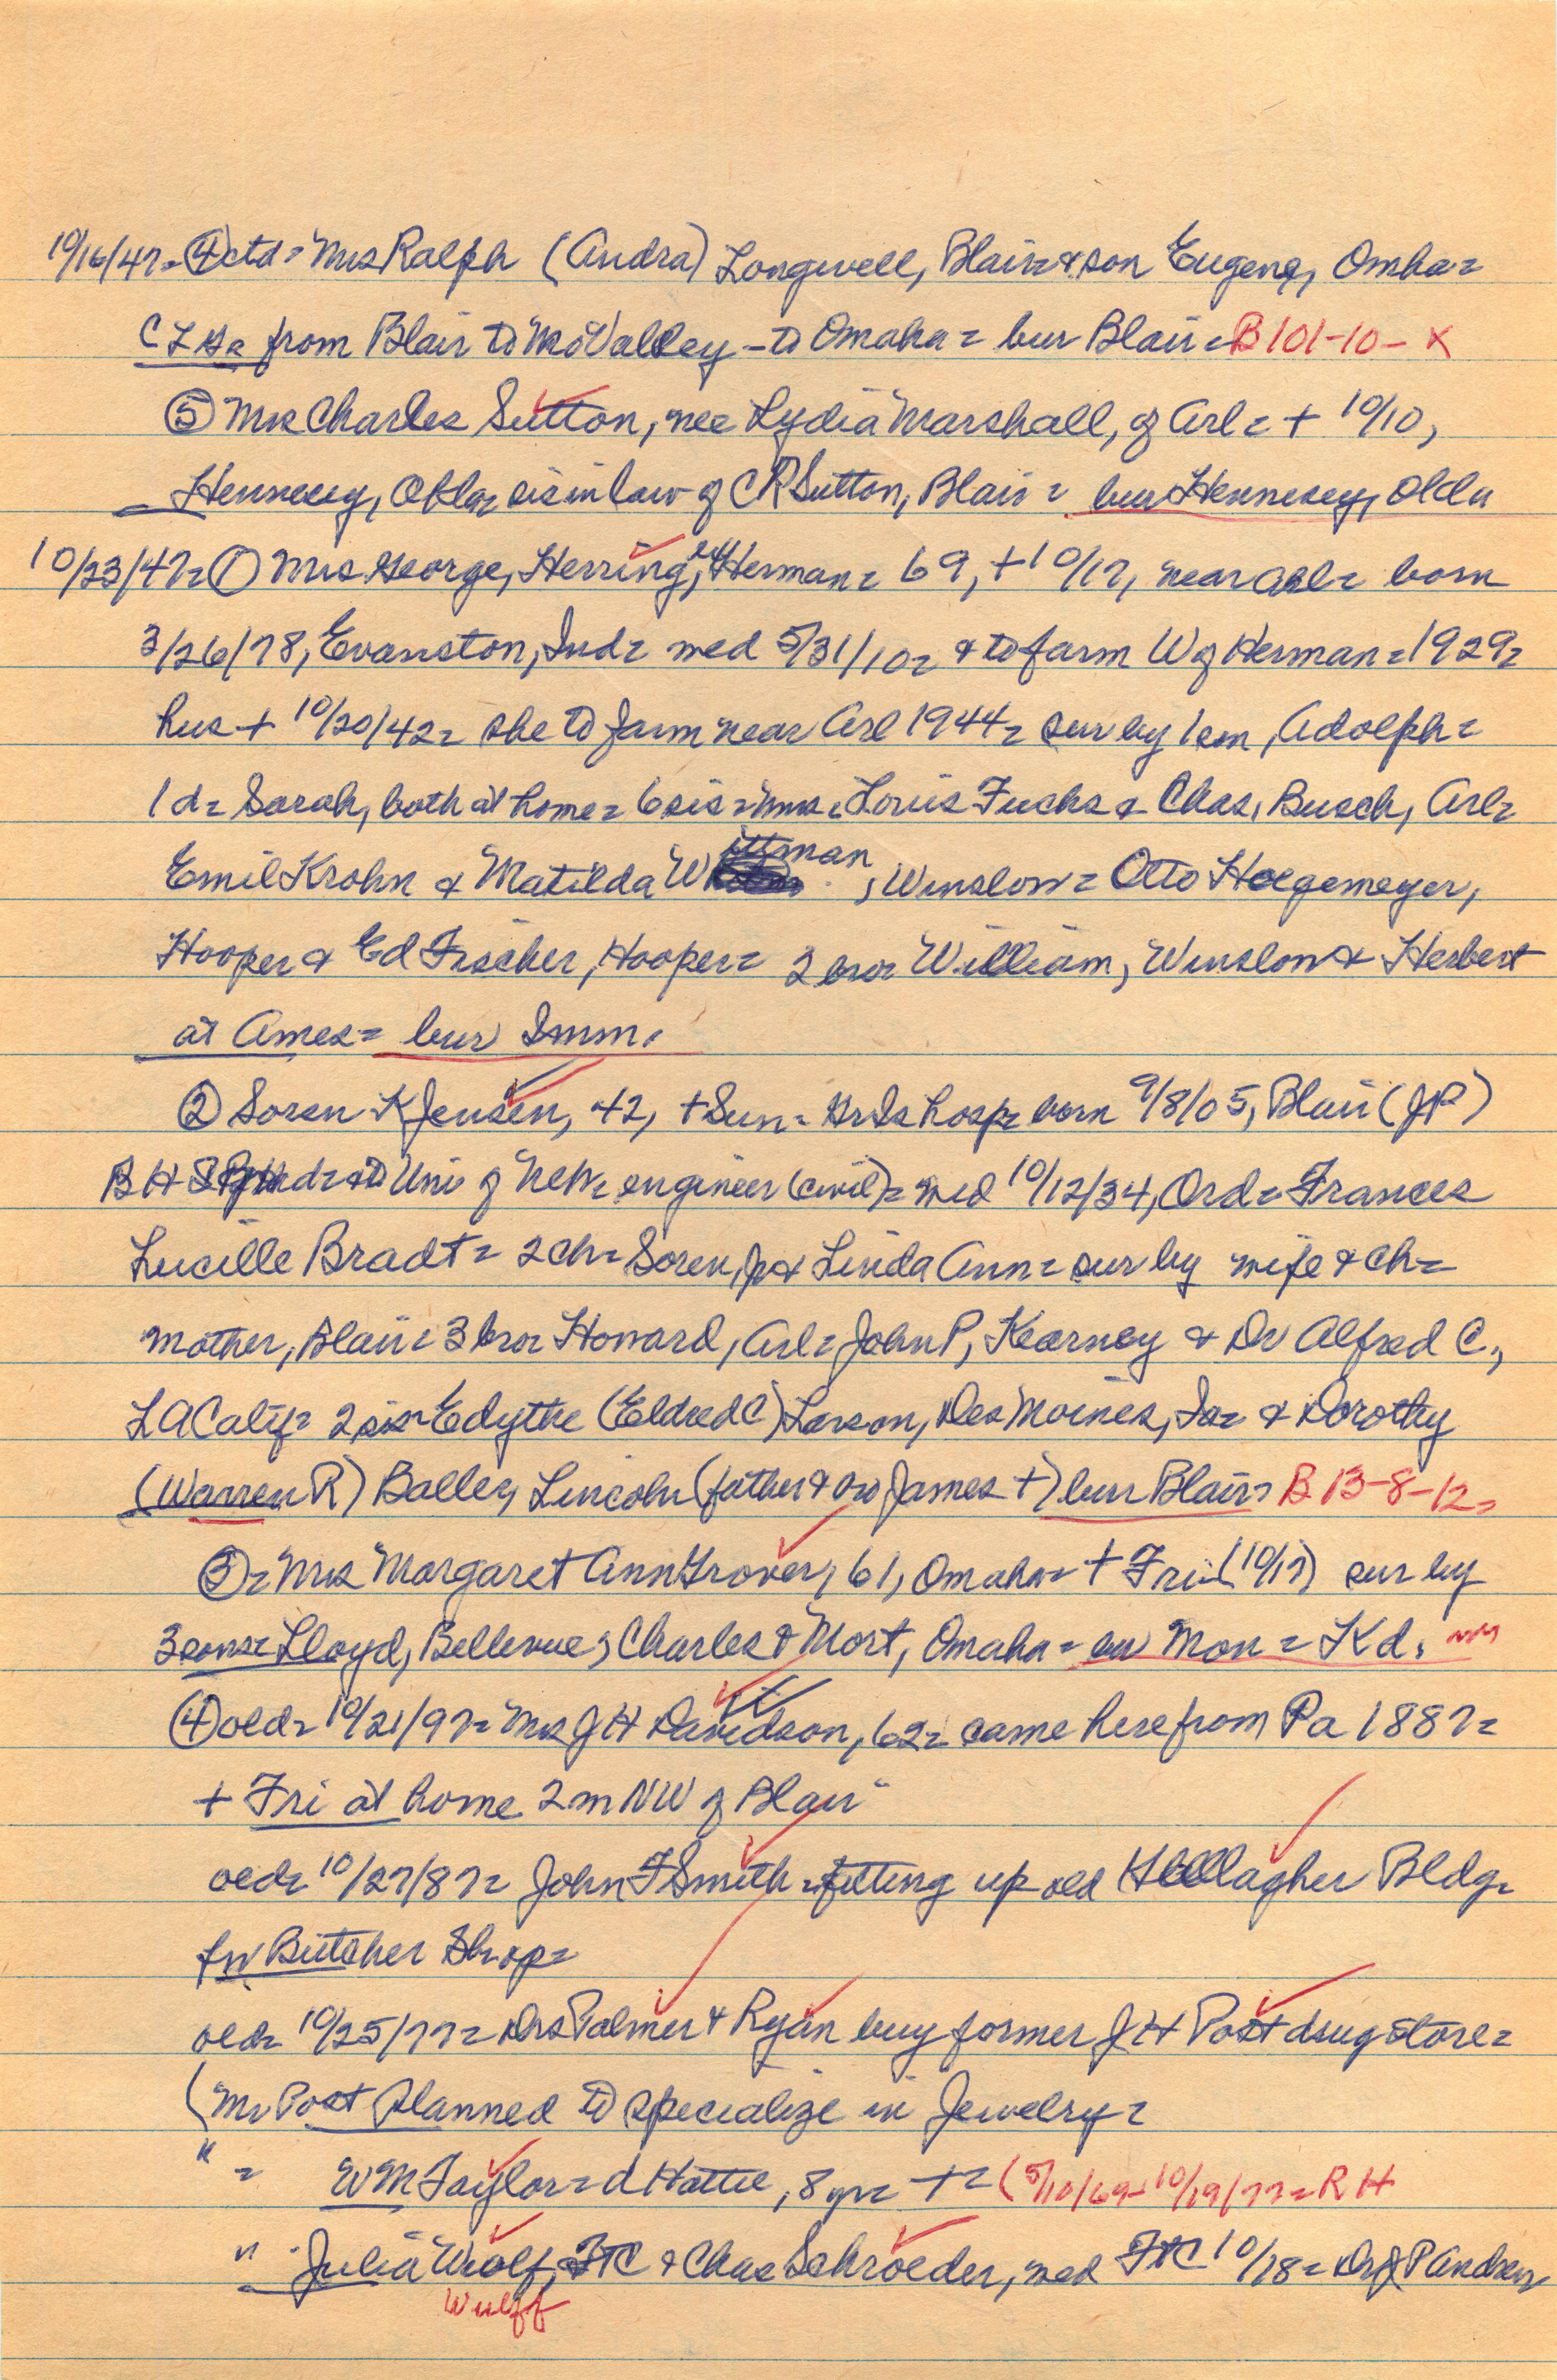 10/16/47= ④ ctd= Mrs Ralph (Audra) Longwell, Blair & son Eugene, Omha=
from Blair to Mo Valley - to Omaha = bur Blair = B 101-10- X
⑤ Mrs Charles Sutton, nee Lydia Marshall, of Arl = + 10/10,
Hennesey, Okla= sisinlaw of C R Sutton, Blair = bur Hennesey, Okla
10/23/47= ① Mrs George, Herring, Herman = 69, + 10/17, near Arl = born
3/26/78, Evanston, Ind= med 5/31/10= & to farm W of Herman = 1929=
hus + 10/20/42= she to farm near Arl 1944= sur by 1 son, Adolph=
1 d= Sarah, both at home= 6 sis = Mrs = Louis Fuchs & Chas, Busch, Arl=
Emil Krohn & Matilda Wittman, Winslow = Otto Hoegemeyer,
Hooper & Ed Fischer, Hooper= 2 bror William, Winslow & Herbert
at Ames= bur Imm.
② Soren K Jensen, 42, + Sun= hosp= born 9/8/05, Blair (JP)
B H S to Uni of Neb= engineer (civil)= med 10/12/34, Ord= Frances
Lucille Bradt = 2 ch= Soren, Jr & Linda Ann = sur by wife & ch=
mother, Blair = 3 bror Howard, Arl= John P, Kearney & Dr Alfred C.,
L A Calif= 2 sis= Edythe (Eldred C) Larson, Des Moines, Ia= & Dorothy
(Warren R) Balley, Lincoln (father & bro James +) bur Blair= B 13-8-12=
③= Mrs Margaret Ann Grover, 61, Omaha= + Fri (10/17) sur by
3 sons= Lloyd, Bellevue, Charles & Mort, Omaha = bur Mon = Kd.
④ old= 10/21/97= Mrs J H Davidson, 62= came here from Pa 1887=
+ Fri at home 2 m NW of Blair
old= 10/27/87= John F Smith = fitting up old Gallagher Bldg=
for Butcher Shop=
old= 10/25/77= Drs Palmer & Ryan buy former J H Post drug store=
(Mr Post planned to specialize in Jewelry=
" = W M Taylor = d Hattie, 8 yr= + = (5/10/69-10/19/77= R H
" Julia Wolf, FTC & Chas Schroeder, med FTC 10/18= Dr J P Andrews
Wulff